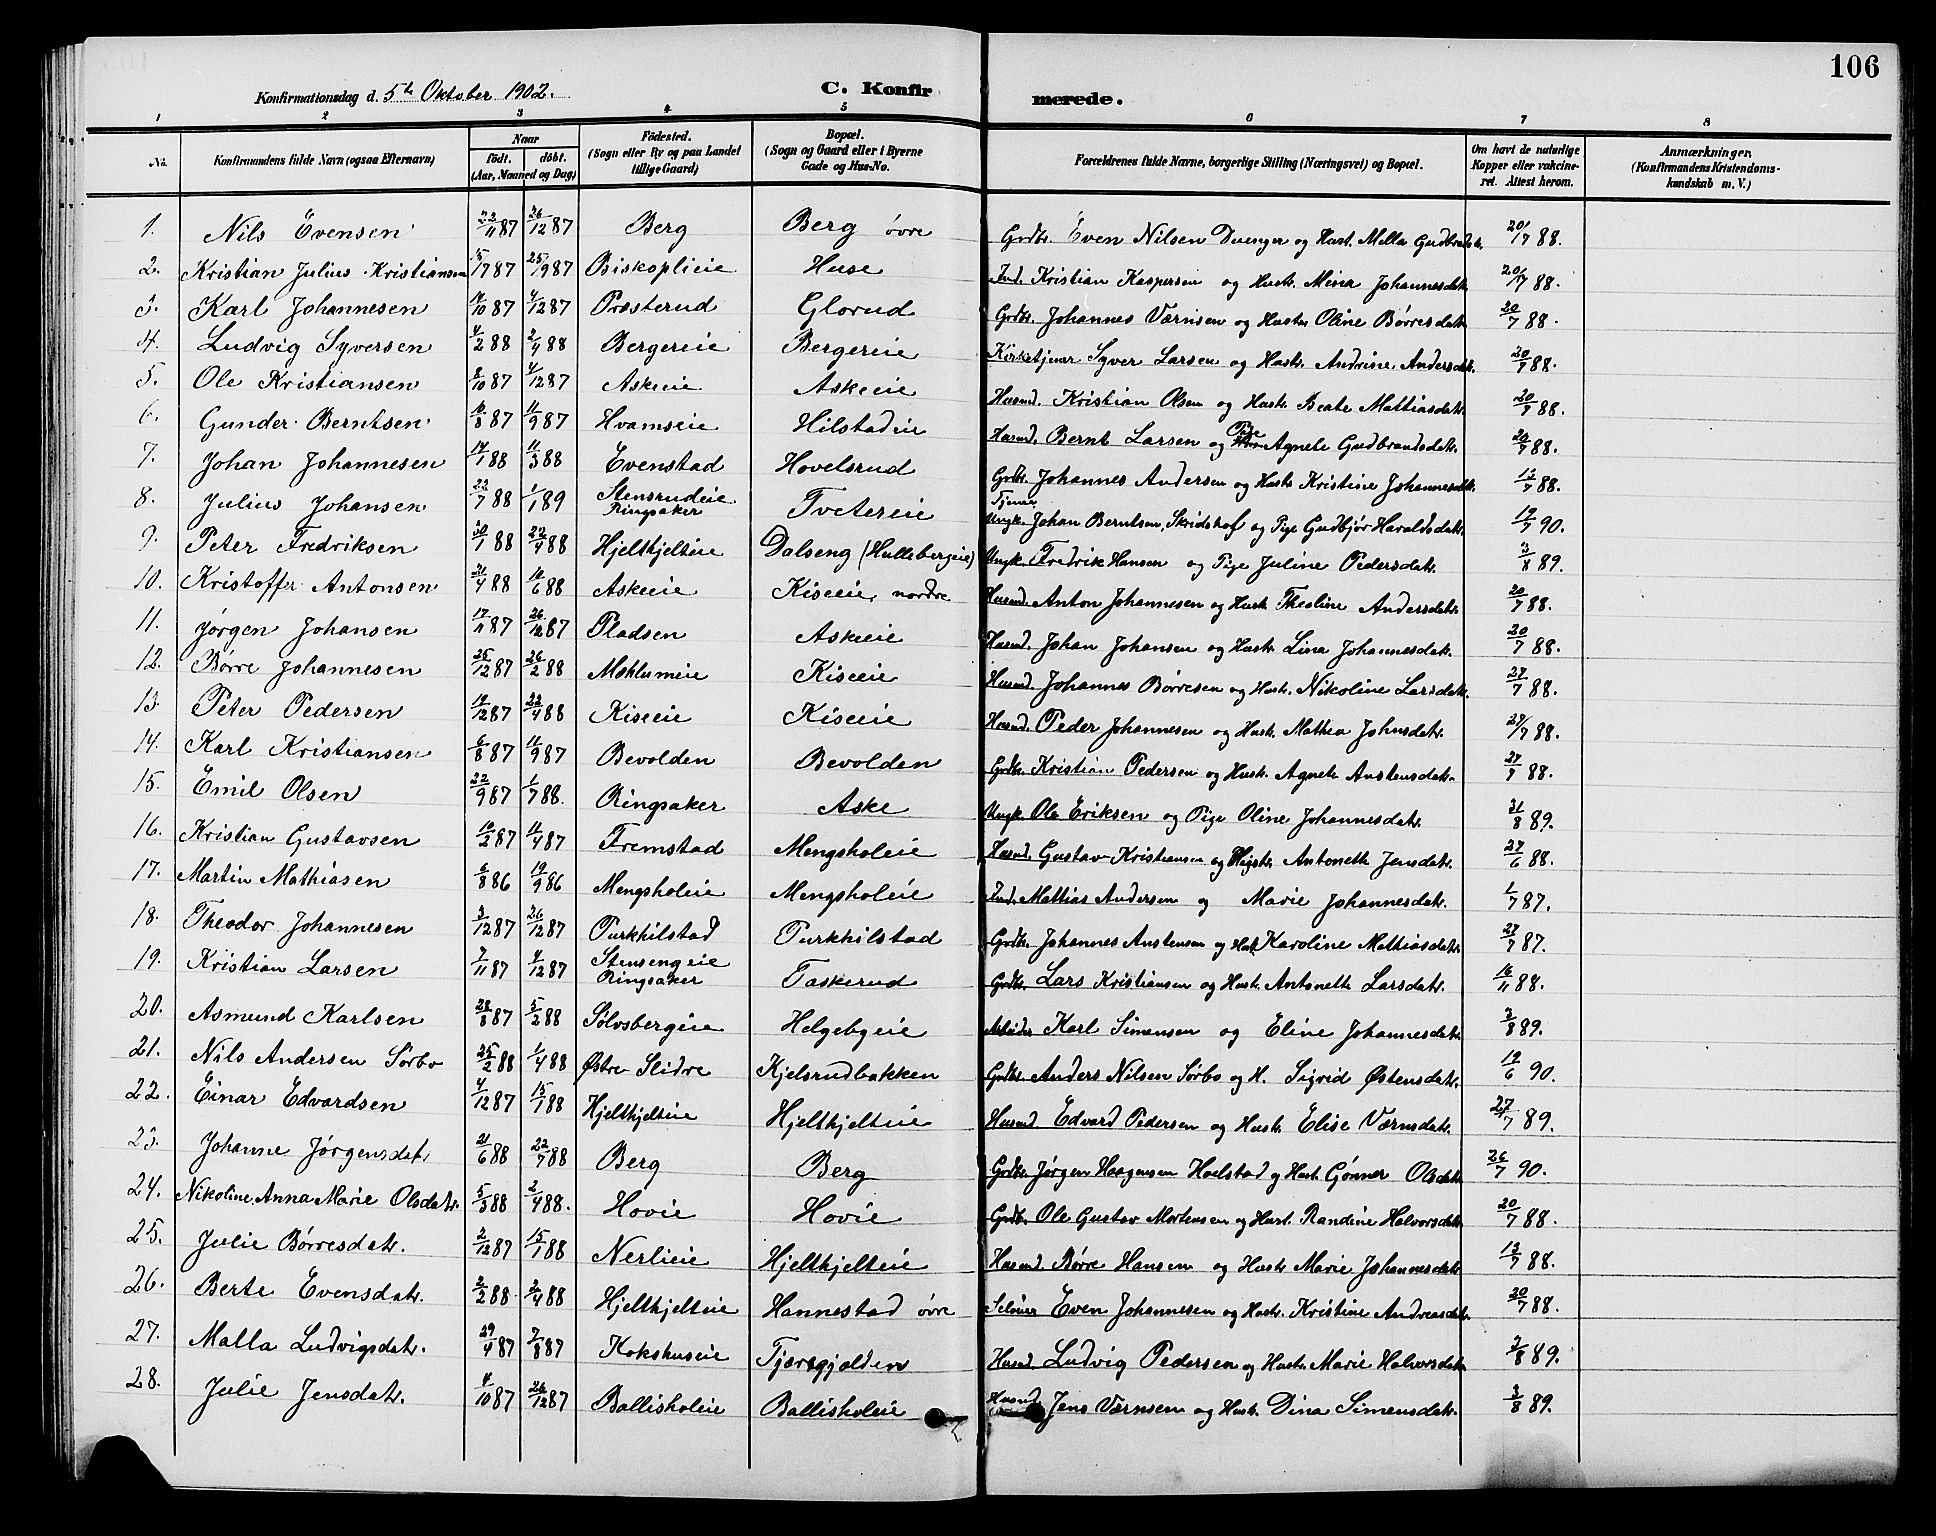 106
Konfirmationsdag d. 5te Oktober 1902.
C. Konfirmerede.
1 2 3 4 5 6 7 8
No. Konfirmandens fulde Navn (ogsaa Efternavn) Naar født. døbt. (Aar, Maaned og Dag) Fødested. (Sogn eller By og paa Landet tillige Gaard) Bopæl. (Sogn og Gaard eller i Byerne Gade og Hus-No. Forældrenes fulde Navne, borgerlige Stilling (Næringsvei) og Bopæl. Om havt de naturlige Kopper eller vakcineret. Attest herom. Anmærkninger. (Konfirmandens Kristendomskundskab m. V.)
1. Nils Evensen 22/11 87 26/12 87 Berg Berg øvre Grdbr. Even Nilsen og Hust. Mella Gudbrdsdtr. 20/7 88.
2. Kristian Julius Kristiansen 5/7 87 25/9 87 Biskoplieie Huse Ind. Kristian Kaspersen og Hustr. Mina Johannesdatr. 20/7 88.
3. Karl Johannesen 14/10 87 4/12 87 Præsterud Glorud Grdbr. Johannes Værnsen og Hustr. Oline Børresdatr. 20/7 88.
4. Ludvig Syversen 4/2 88 2/4 88 Bergereie Bergereie Kirketjener Syver Larsen og Hustr. Andrine Andersdatr. 20/7 88.
5. Ole Kristiansen 8/10 87 4/12 87 Askeeie Askeeie Husmd. Kristian Olsen og Hustr. Beate Mattiasdatr. 20/7 88.
6. Gunder Berntsen 10/8 87 11/9 87 Hvamseie Hilstadeie Husmd. Bernt Larsen og Pige Agnete Gudbrandsdatr. 20/7 88.
7. Johan Johannesen 14/1 88 11/3 88 Evenstad Hovelsrud Grdbr. Johannes Andersen og Hustr. Kristine Johannesdatr. 13/7 88.
8. Julius Johansen 22/7 88 1/1 89 Stensrudeie Ringsaker Tvetereie Tjener Ungk. Johan Berntsen, Skridshof og Pige Gudbjør Haraldsdatr. 19/7 90.
9. Peter Fredriksen 30/1 88 22/4 88 Hjelthjelteie Dalseng (Hullebergeie) Ungk. Fredrik Hansen og Pige Juline Pedersdatr. 2/8 89.
10. Kristoffer Antonsen 21/4 88 10/6 88 Askeeie Kiseeie, nordre Husmd. Anton Johannesen og Hustr. Theoline Andersdatr. 20/7 88.
11. Jørgen Johansen 17/11 87 26/12 87 Pladsen Askeeie Husmd. Johan Johansen og Hustr. Lina Johannesdatr. 20/7 88.
12. Børre Johannesen 25/12 87 26/2 88 Mohlumeie Kiseeie Husmd. Johannes Børresen og Hustr. Nikoline Larsdatr. 27/7 88.
13. Peter Pedersen 14/12 87 22/4 88 Kiseeie Kiseeie Husmd. Peder Johannesen og Hustr. Mathea Johnsdatr. 27/7 88.
14. Karl Kristiansen 6/8 87 11/9 87 Bevolden Bevolden Grdbr. Kristian Pedersen og Hustr. Agnete Anstensdatr. 27/7 88.
15. Emil Olsen 22/9 87 1/7 88. Ringsaker Aske Ungk. Ole Eriksen og Pige Oline Johannesdatr. 31/8 89.
16. Kristian Gustavsen 10/2 87 11/4 87 Fremstad Mengsholeie Husmd. Gustav Kristiansen og Hustr. Antonette Jensdatr. 27/6 88.
17. Martin Mathiasen 6/8 86 19/9 86 Mengsholeie Mengsholeie Ind. Mattias Andersen og Marie Johannesdatr. 1/7 87.
18. Theodor Johannesen 3/12 87 26/12 87 Purkhilstad Purkhilstad Grdbr. Johannes Anstensen og Hust. Karoline Mattiasdatr. 27/7 87.
19. Kristian Larsen 7/11 87 4/12 87 Stensengeie Ringsaker Taskerud Grdbr. Lars Kristiansen og Hustr. Antonette Larsdatr. 16/11 88.
20. Asmund Karlsen 28/8 87 5/2 88 Sølvsbergeie Helgebyeie Arbeider Karl Simensen og Eline Johannesdatr. 2/8 89.
21. Nils Andersen Sørbo 25/2 88 1/4 88 Østre Slidre Kjelsrudbakken Grdbr. Anders Nilsen Sørbo og H. Sigrid Østensdatr. 19/6 90.
22. Einar Edvardsen 4/12 87 15/1 88 Hjelthjelteie Hjelthjelteie Husmd. Edvard Pedersen og Hustr. Elise Værnsdatr. 27/7 89.
23. Johanne Jørgensdatr 21/6 88 22/7 88 Berg Berg Grdbr. Jørgen Haagensen Hoelstad og Hust. Gønner Olsdatr. 26/7 90.
24. Nikoline Anna Marie Olsdatr. 5/3 88 2/4 88. Hovie Hovie Grdb. Ole Gustav Mortensen og Hust. Randine Halvorsdatr. 20/7 88.
25. Julie Børresdatr. 2/12 87 15/1 88 Nerlieie Hjelthjelteie Husmd. Børre Hansen og Hustr. Marie Johannesdatr. 13/7 88.
26. Berte Evensdatr. 2/2 88 2/4 88 Hjelthjelteie Hannestad øvre Selveier Even Johannesen og Hustr. Kristine Andreasdatr. 20/7 88.
27. Malla Ludvigsdatr. 29/4 87 7/8 87 Kokshuseie Tjærsgjolden Husmd. Ludvig Pedersen og Hustr. Marie Halvorsdatr. 2/8 89.
28. Julie Jensdatr. 4/10 87 26/12 87 Ballisholeie Ballisholeie Husmd. Jens Værnsen og Hustr. Dina Simensdatr. 2/8 89.